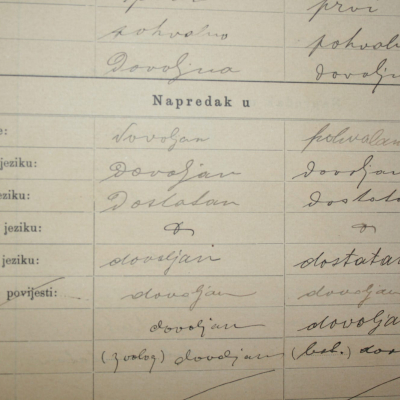 prvi
pohvalno pohvaln
Dovoljna dovolju
Napredak u
e: dovoljan pohvalan
jeziku: Dovoljan dovoljan
jeziku: Dostatan dostata
jeziku:
jeziku: dovoljan dostatan
povijesti: dovoljan dovoljan
dovoljan dovolja
(zoolog) dovoljan (bot.) dov